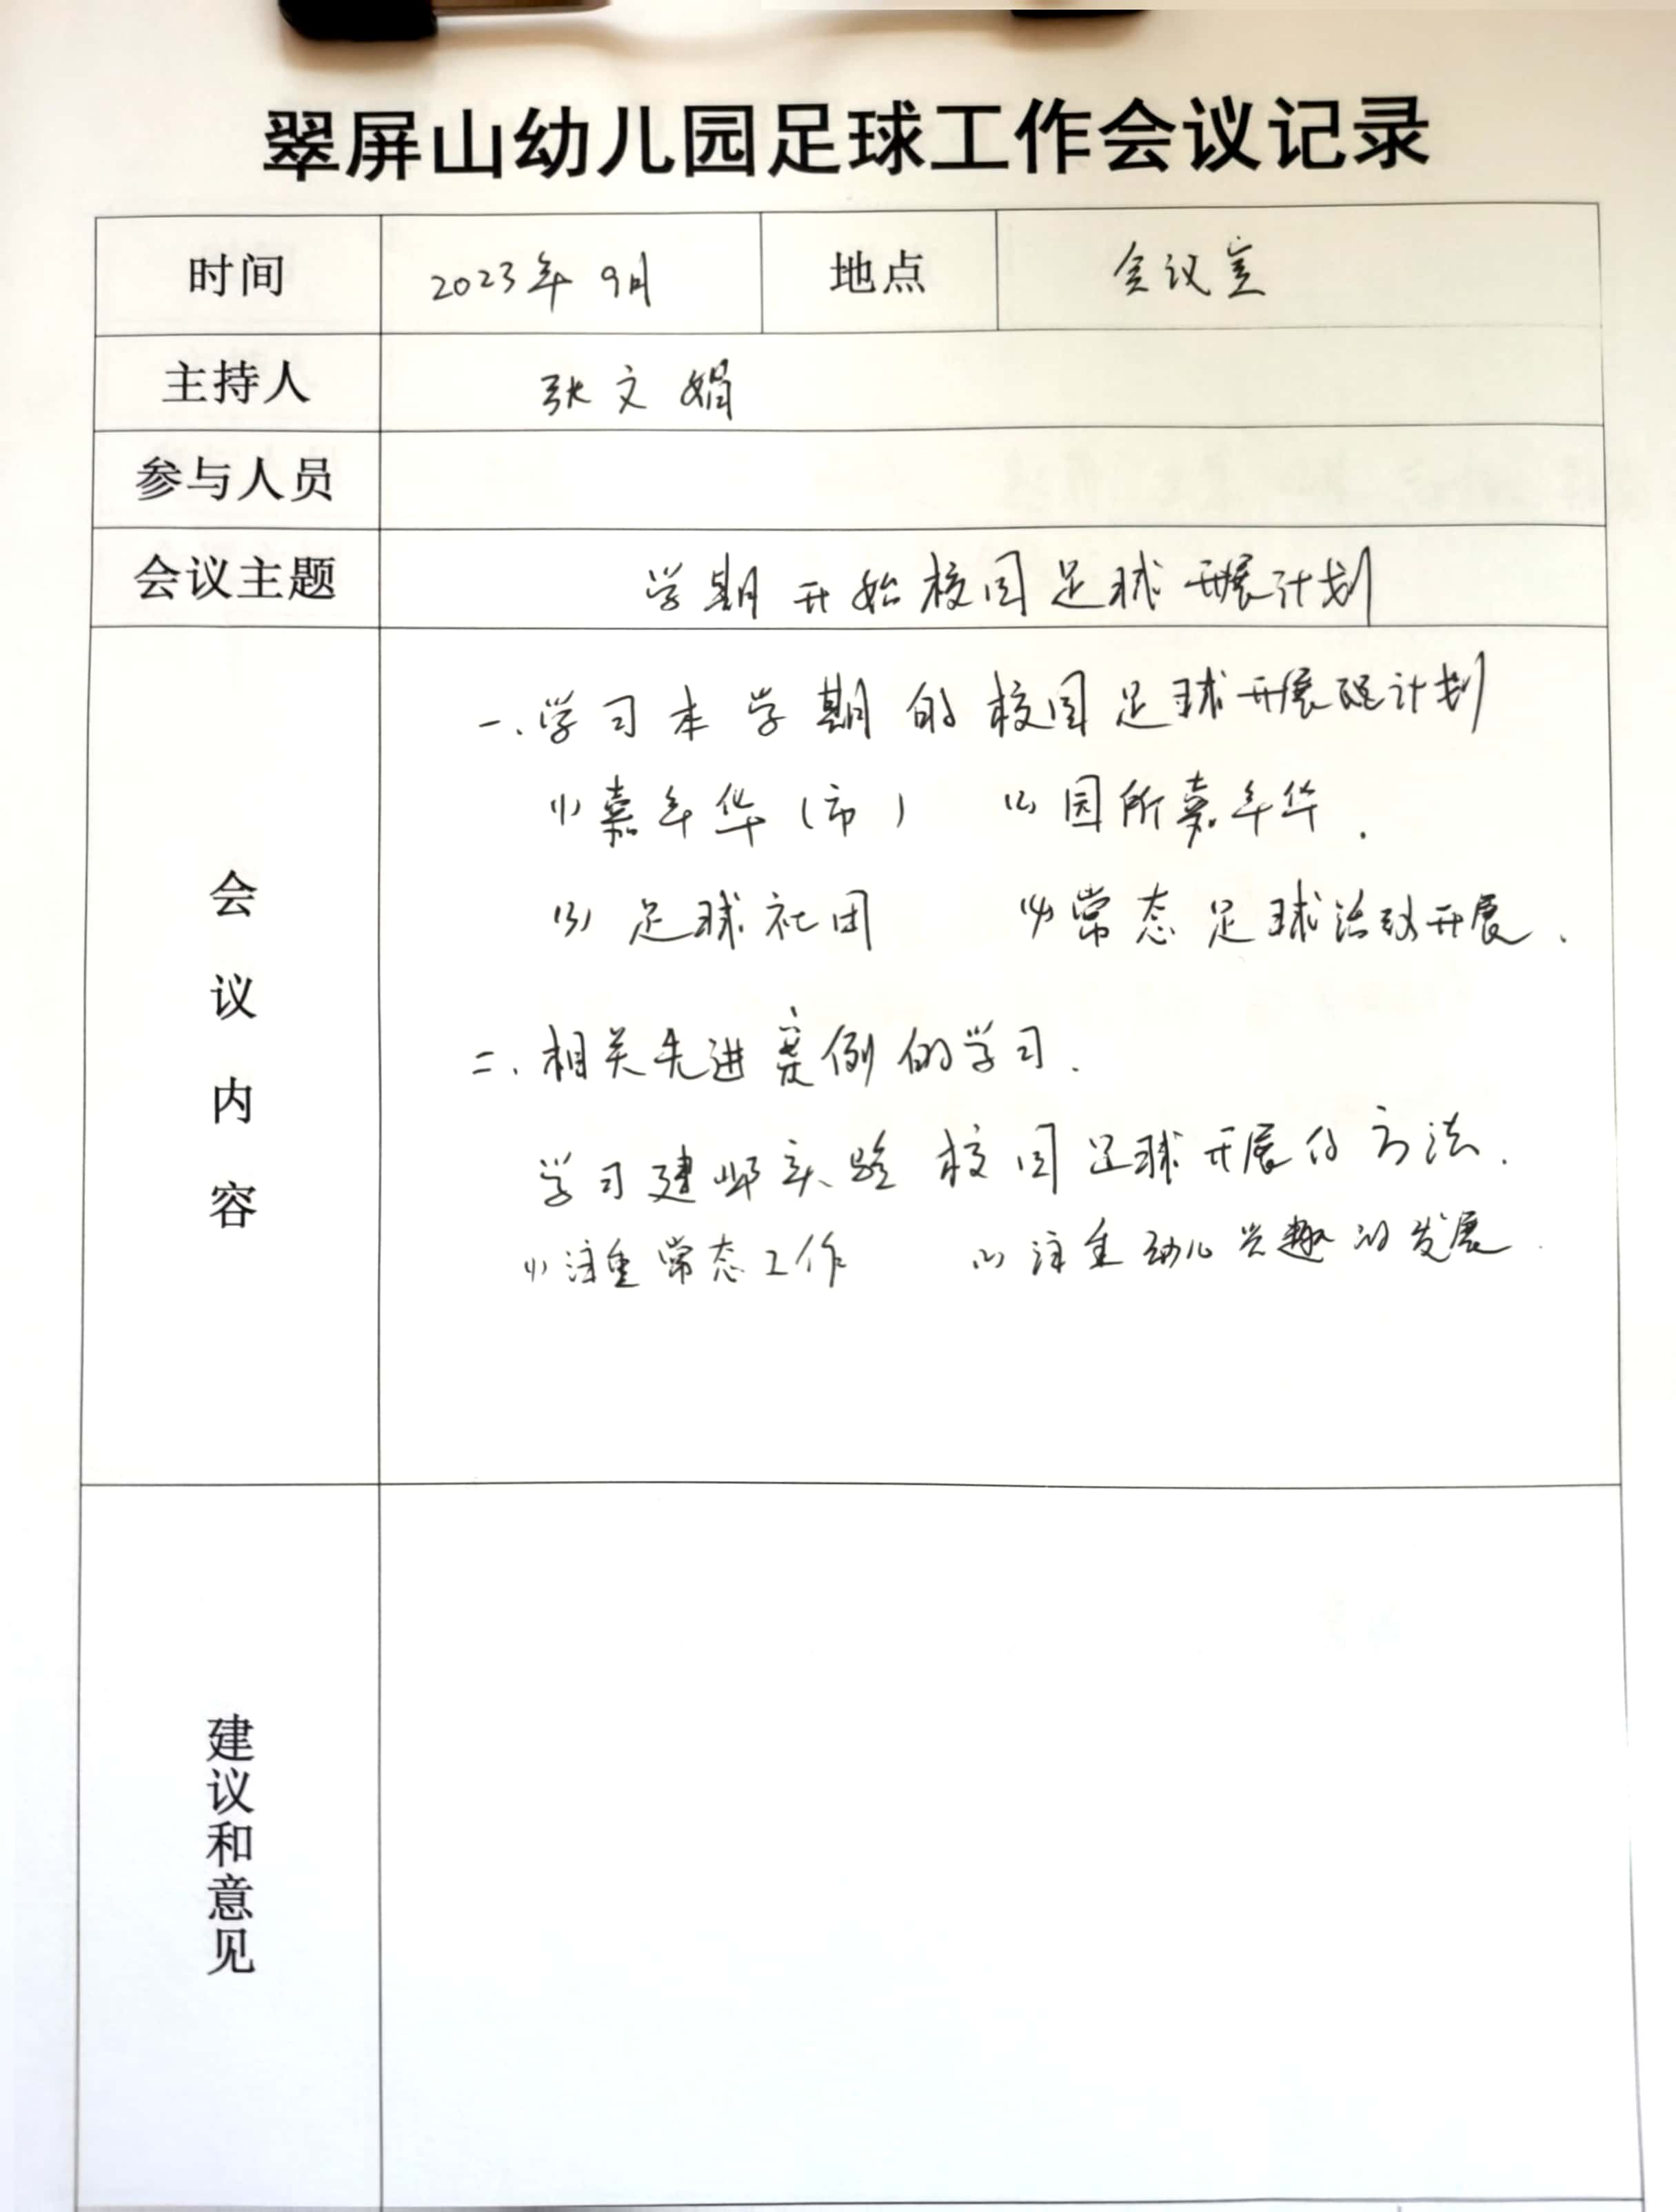 翠屏山幼儿园足球工作会议记录
时间 2023年9月 地点 会议室
主持人 张文娟
参与人员
会议主题 学期开始校园足球开展计划
会议内容
一、学习本学期的校园足球开展计划
(1)嘉年华(市) (2)园所嘉年华.
(3)足球社团 (4)常态足球活动开展.
二、相关先进案例的学习.
学习建邺实验校园足球开展的方法.
(1)注重常态工作 (2)注重幼儿兴趣的发展.
建议和意见